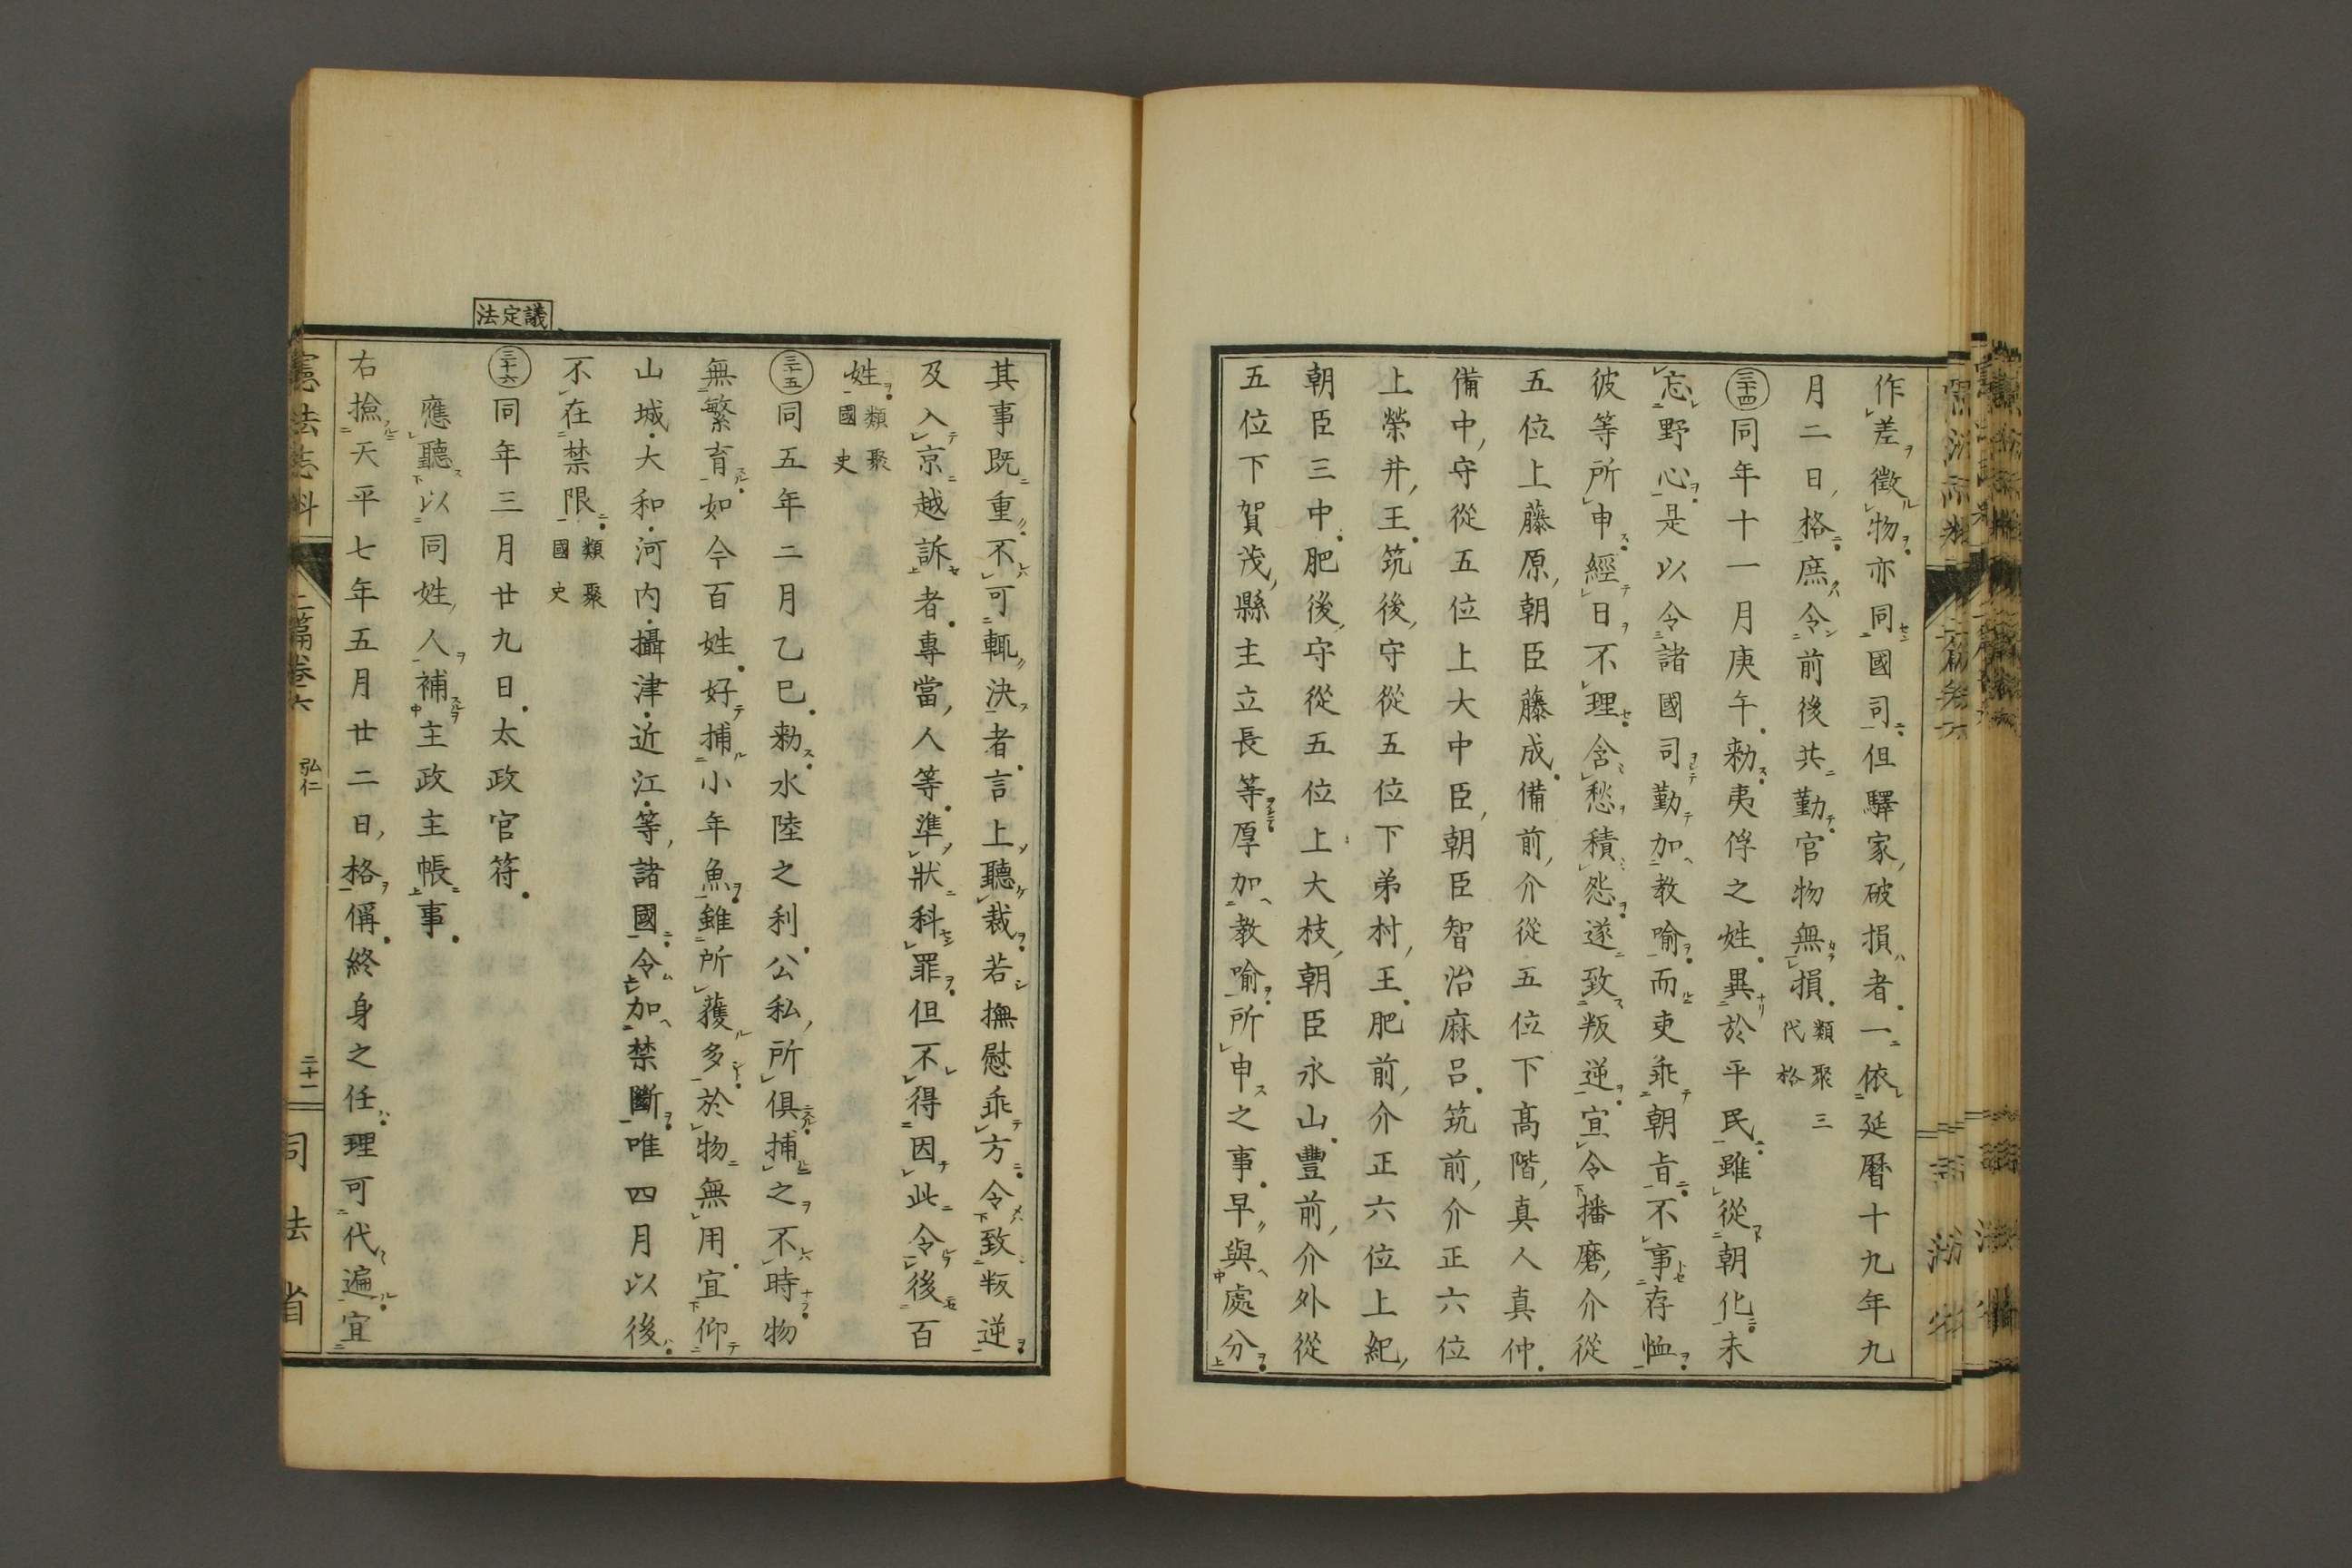 作差徵物亦同國司但驛家破損者一依延曆十九年九
月二日格庶令前後共勤官物無損類聚三代格
三十四同年十一月庚午勅夷俘之姓異於平民雖從朝化未
忘野心是以令諸國司勤加教喻而吏乖朝旨不事存恤
彼等所申經日不理含愁積怨遂致叛逆宣令播磨介從
五位上藤原朝臣藤成備前介從五位下髙階真人真仲
備中守從五位上大中臣朝臣智治麻呂筑前介正六位
上榮井王筑後守從五位下弟村王肥前介正六位上紀
朝臣三中肥後守從五位上大枝朝臣永山豐前介外從
五位下賀茂縣主立長等厚加教喻所申之事早與處分
其事既重不可輒決者言上聽裁若撫慰乖方令致叛逆
及入京越訴者專當人等準狀科罪但不得因此令後百
姓類聚國史
三十五同五年二月乙巳勅水陸之利公私所俱捕之不時物
無繁育如今百姓好捕小年魚雖所獲多於物無用宜仰
山城大和河内攝津近江等諸國令加禁斷唯四月以後
不在禁限類聚國史
議定法
三十六同年三月廿九日太政官符
應聽以同姓人補主政主帳事
右撿天平七年五月廿二日格偁終身之任理可代遍宜
憲法志料 二篇卷六 弘仁 二十一 司法省